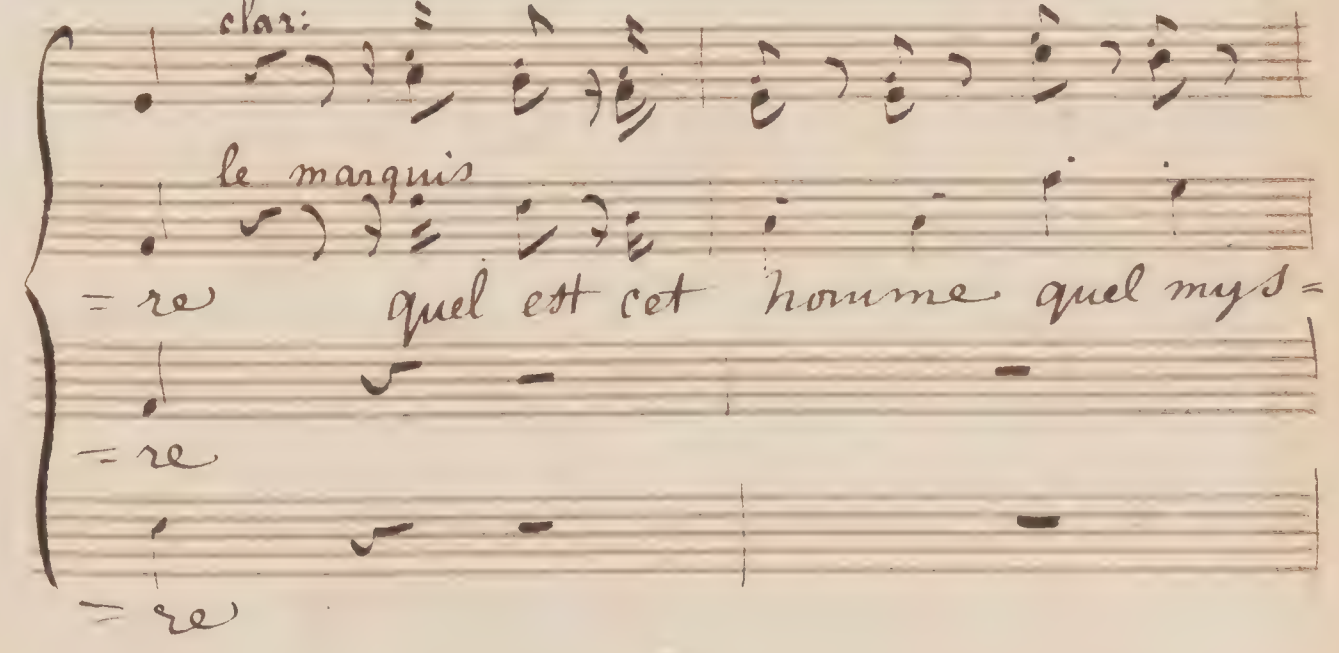 clar:
le marquis
= re quel est cet homme quel mys =
= re
= re